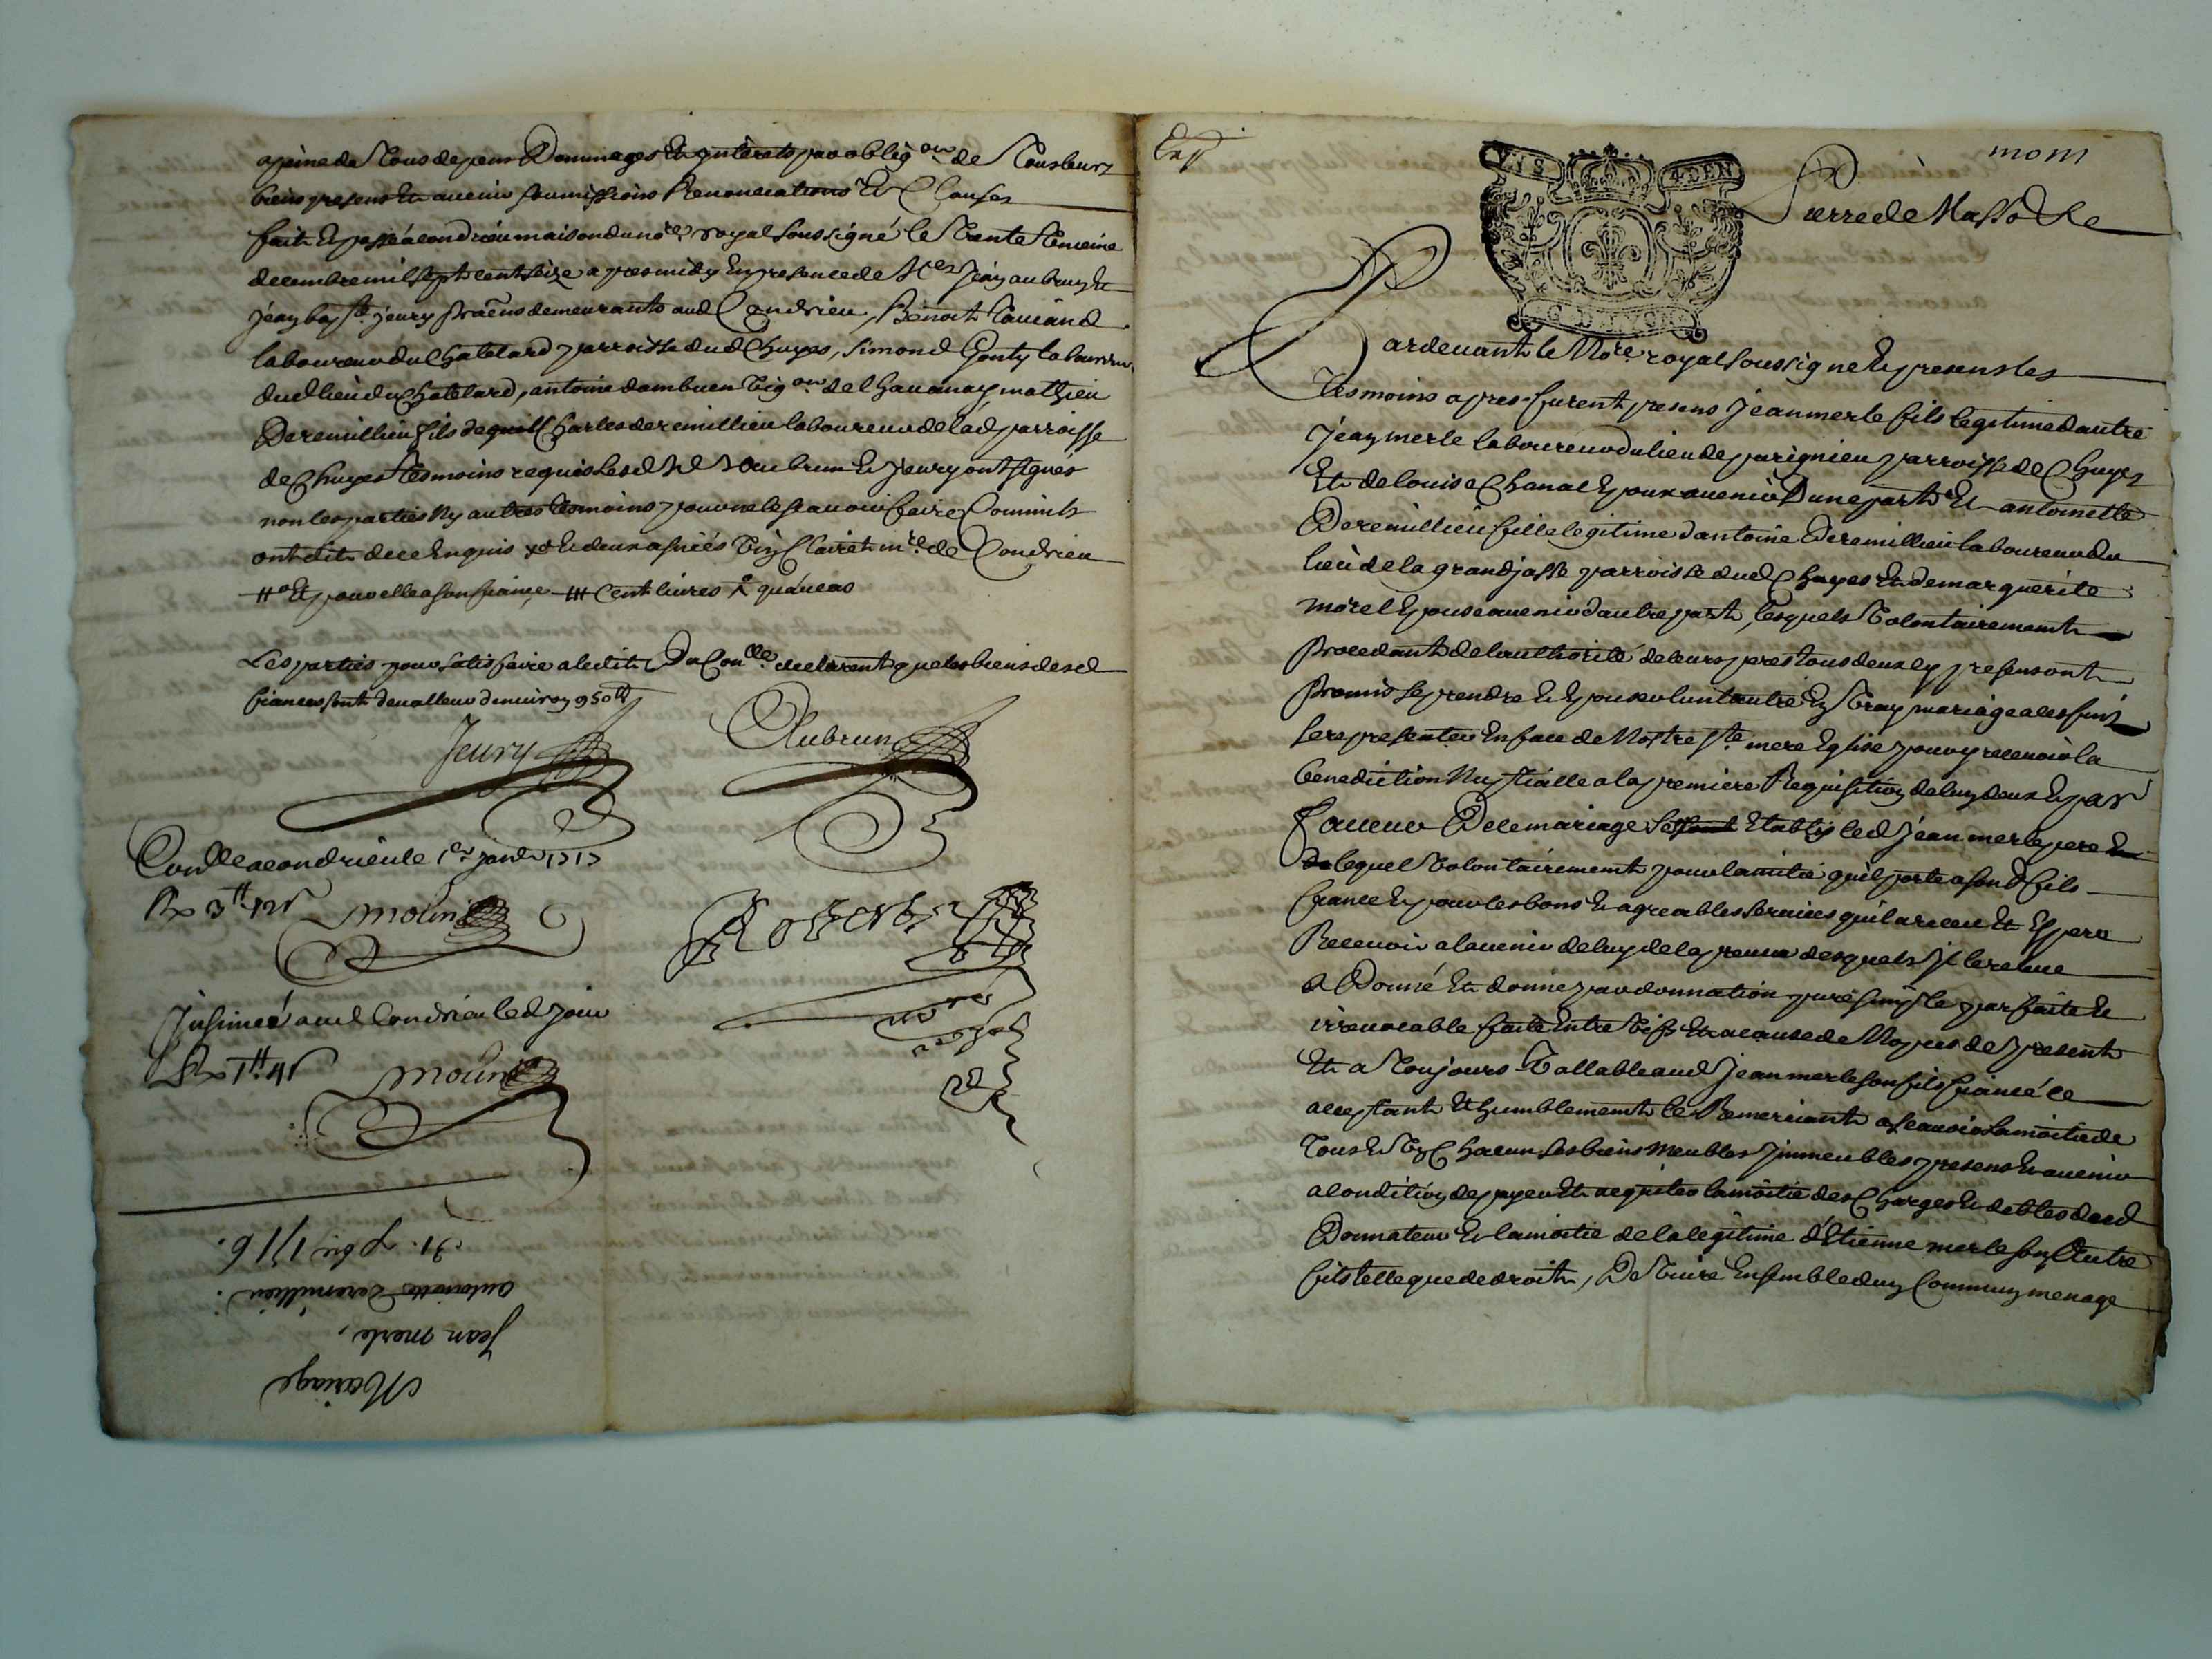 apeine de Tous depens Dommages Et jnterets par oblig.on de Tous leurs
biens presens Et avenir soumissions Renonciations Et Clauses
fait Et passé a condrieu maison du no.re royal soussigné le Trente
decembre mil sept cent seize apres midy En presence de Jean aubrun Et
jean bap.te jeury demeurants aud Condrieu, Benoit
laboureur du Chatelard parroisse dud Chuyes, Simond Gonty laboureur
dud lieu du Chatelard, antoine dambuen vig.on de mathieu
Deremillieu fils de Charles deremillieu laboureur de lad parroisse
de Chuyes Tesmoins requis lesd Aubrun Et jeury ont signés
non les parties Ny autres tesmoins pour ne le scavoir faire Comme ils
ont dit de ce Enquis Condrieu
Et pour elle a son fiancé cent livres
Les parties pour satisfaire a ledit Du Con.lle declarent que les biens desd
fiances sont de valleur denviron 950 tt
Jeury Aubrun
Con.lle a condrieu le 1er janv.r 1717
Rx 3tt 12s
Molin
Robert
no.re
royal
Jnsinué aud Condrieu led jour
Rx 1tt 4s
Molin
Mariage
Jean merle,
antoinette Deremillieu.
31. xbre 1716.
Exp
VIS 4 DEN
G D LYON
mom
Pierre de Masso
Pardevant le No.re royal soussigne Et presens les
Tesmoins apres furent presens Jean merle fils legitime d'autre
Jean merle laboureur du lieu de parignieu parroisse de Chuyes
Et de louise Chanal Epoux avenir D'une part Et antoinette
Deremillieu fille legitime d'antoine Deremillieu laboureur du
lieu de la grand jasse parroisse dud Chuyes Et de marguerite
morel Epouse avenir d'autre part, lesquels volontairement
Procedant de l'authorité de leurs peres tous deux cy presens ont
Promis se prendre Et Epouser l'un l'autre En vray mariage a ces fins
se representer En face de Nostre s.te mere Eglise pour y recevoir la
benediction Nuptialle a la premiere Requisition de l'un d'eux En
faveur De ce mariage Etably led Jean merle pere
lequel volontairement pour lamitié qu'il porte a son d fils
fiancé Et pour les bons Et agreables services qu'il a receu Et Espere
Recevoir a lavenir de luy de la preuve desquels Jl le releve
A Donné Et donne par donnation pure simple parfaite Et
irrevocable faite Entre vifs Et a cause de Nopces de present
Et a Toujours vallable aud Jean merle son fils fiancé ce
acceptant Et humblement le Remerciant a scavoir la moitie de
Tous Et Un Chacun ses biens Meubles Jmmeubles presens Et avenir
a condition de payer Et acquiter la moitie des Charges Et debtes dud
Donnateur Et la moitie de la legitime d'Etienne merle son Autre
fils telle que de droit, De vivre Ensemble d'un Commun menage